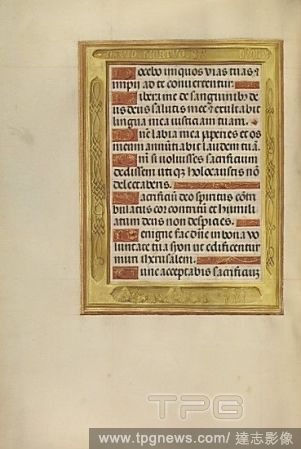 Docebo iniquos vias tuas ⁊
impij ad te conuertentur.
Libera me de sanguinibꝰ de
us deus salutis mee: ⁊ exultabit
lingua mea iusticiam tuam.
Dñe labia mea aperies et os
meum annũtiabit laudem tuã.
Qm̃ si voluisses sacrificium
dedissem vtiqꝫ holocaustis nõ
delectaberis.
Sacrificiũ deo spiritus cõtri
bulatus cor contritũ et humili
atum deus non despicies.
Benigne fac dñe in bona vo
luntate tua syon vt edificentur
muri iherusalem.
Tunc acceptabis sacrificiũ
TPG
www.tpgnews.com/ 達志影像